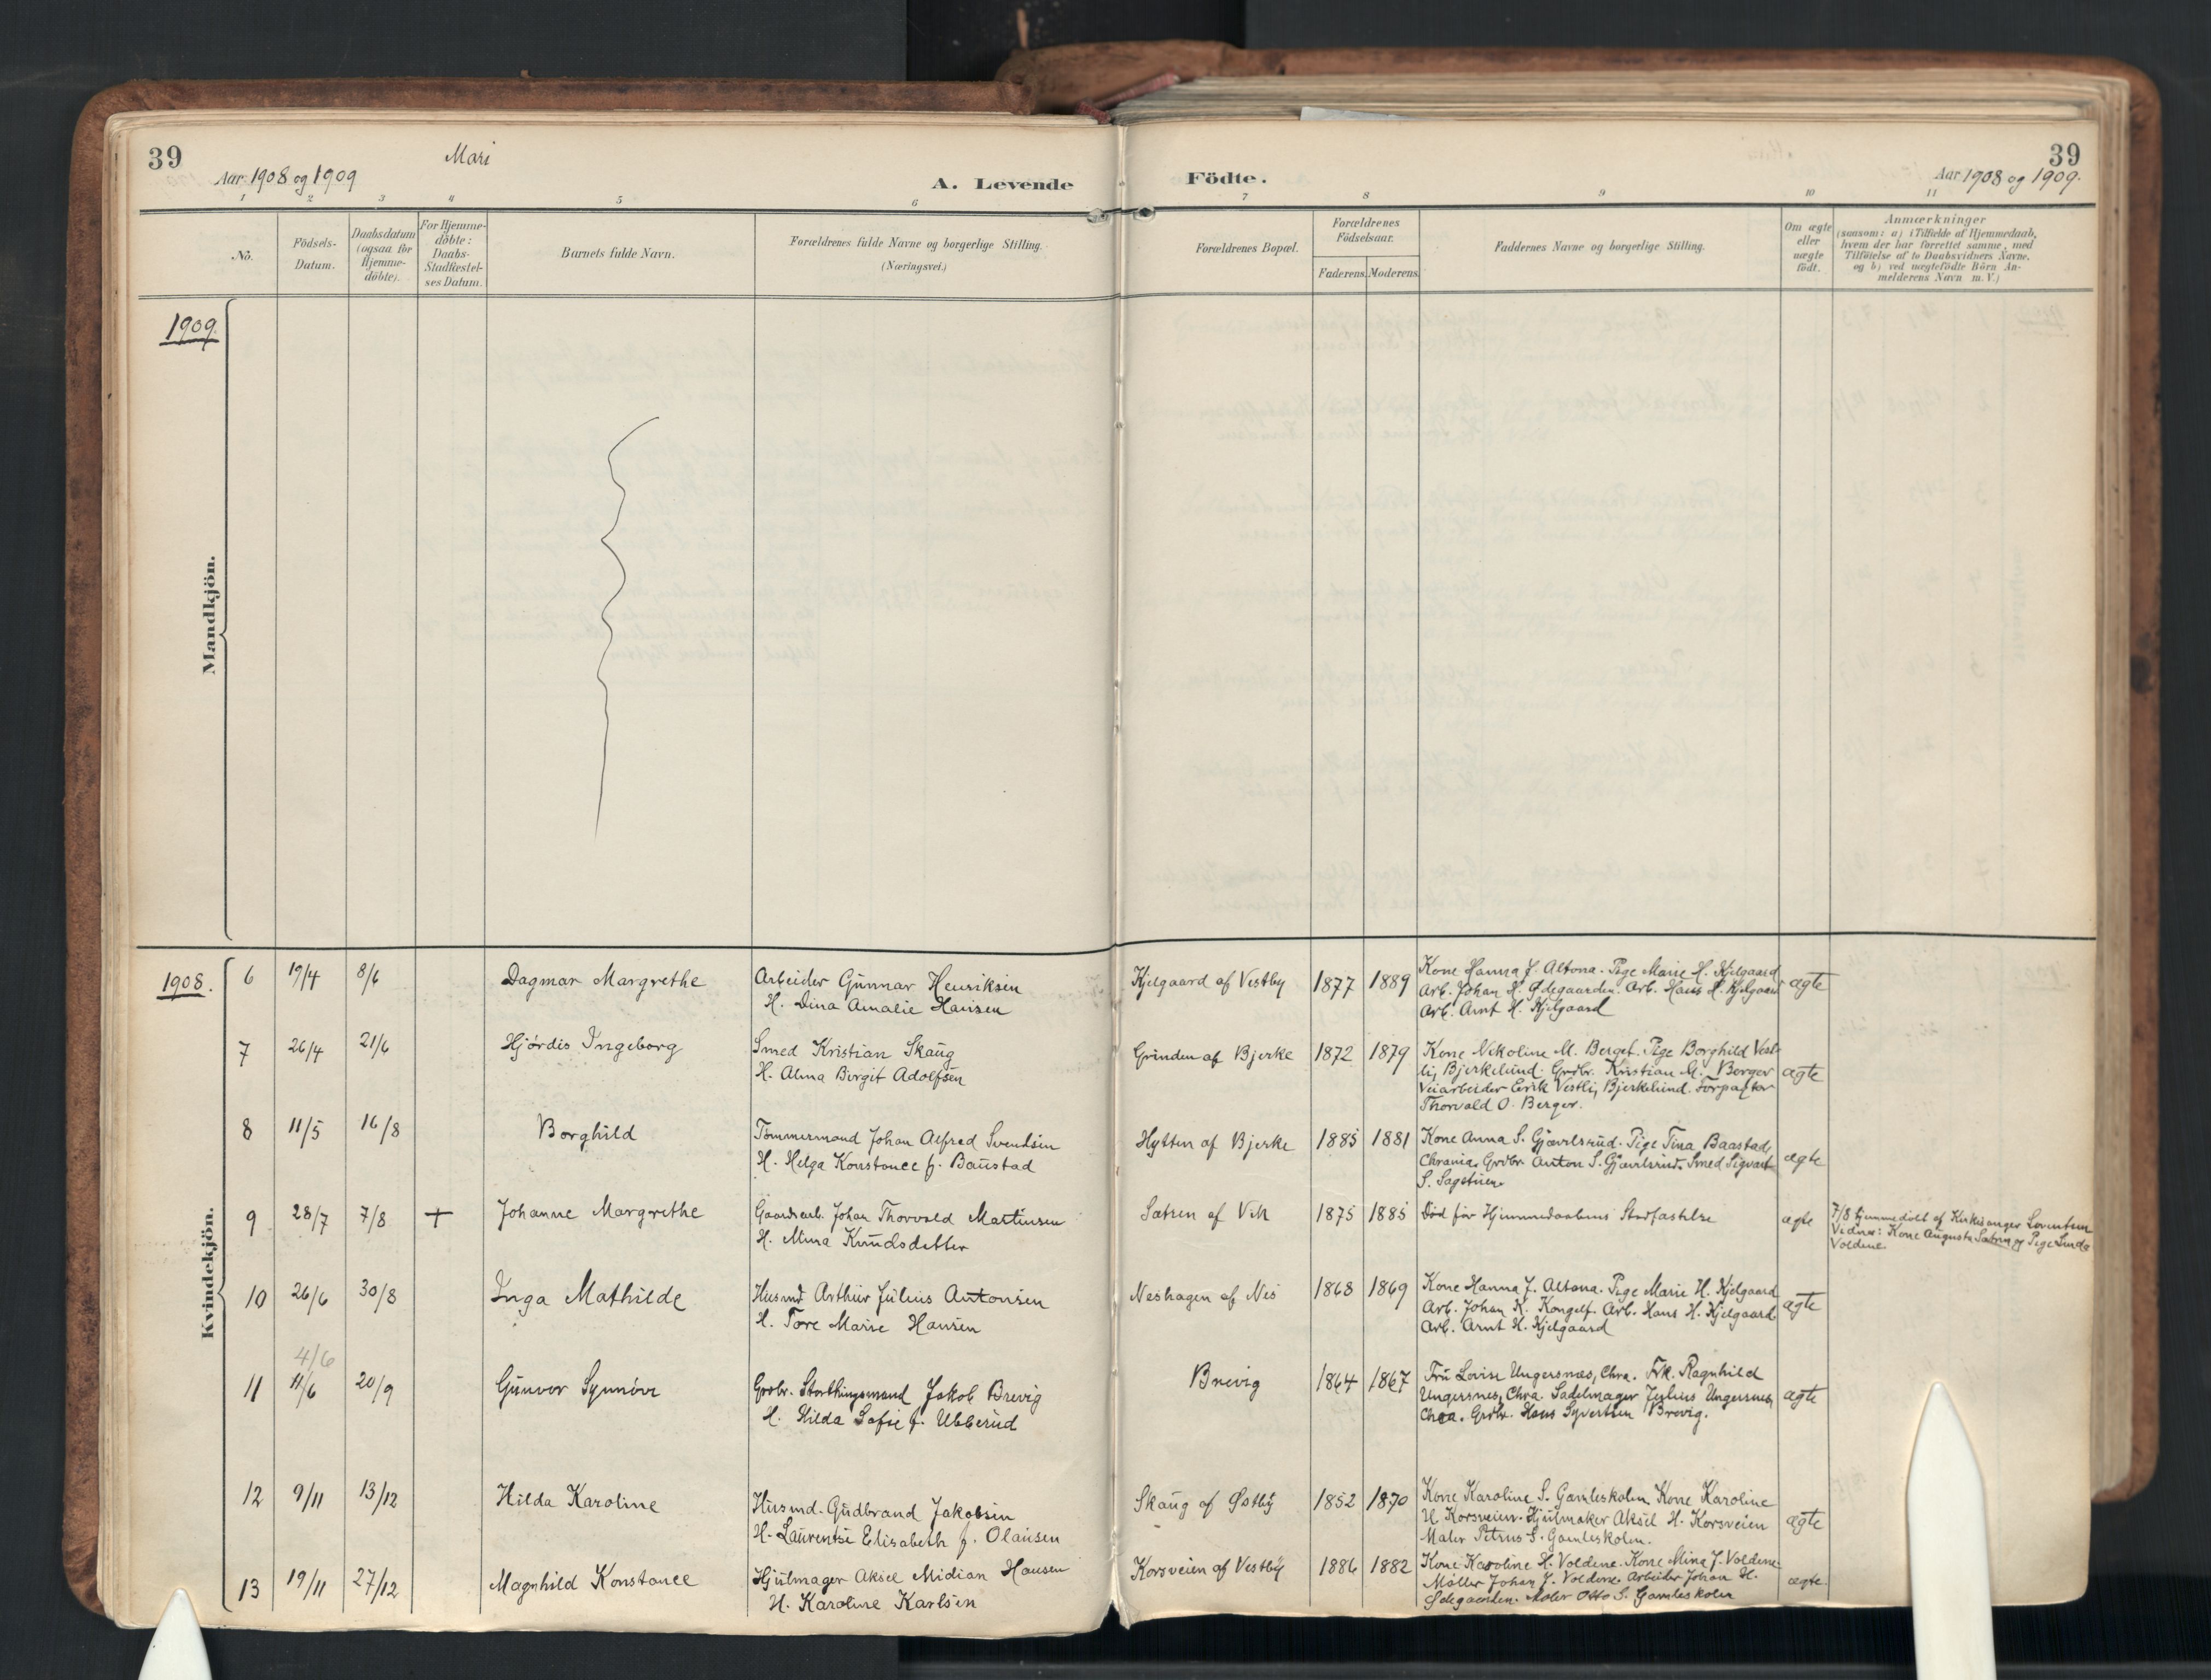 39
Mari
Aar 1908 og 1909
A. Levende
Födte.
39
Aar 1908 og 1909.
1 2 3 4 5 6 7 8 9 10 11
No.
Födsels-Datum.
Daabsdatum (ogsaa for Hjemme-döbte).
For Hjemme-döbte: Daabs-Stadfæstel-ses Datum.
Barnets fulde Navn.
Forældrenes fulde Navne og borgerlige Stilling.
(Næringsvei.)
Forældrenes Bopæl.
Forældrenes Födselsaar.
Faderens.
Moderens.
Faddernes Navne og borgerlige Stilling.
Om ægte eller uægte födt.
Anmærkninger
(saasom: a) i Tilfælde af Hjemmedaab, hvem der har forrettet samme, med Tilföielse af to Daabsvidners Navne, og b) ved uægtefödte Börn An-melderens Navn m. V.)
1909.
Mandkjön.
1908.
Kvindekjön.
6 19/4 8/6 Dagmar Margrethe
Arbeider Gunnar Henriksen
H. Dina Amalie Hansen
Kjelgaard af Vestby 1877 1889
Kone Hanna J. Altona. Pige Marie H. Kjelgaard
Arb. Johan H. Ødegaarden. Arb. Hans H. Kjelgaard
Arb. Arnt H. Kjelgaard
ægte
7 26/4 21/6 Hjørdis Ingeborg
Smed Kristian Skaug
H. Alma Birgit Adolfsen
Grinden af Bjerke 1872 1879
Kone Nikoline M. Berget. Pige Borghild Vest-
li, Bjerkelund. Grdbr. Kristian M. Berger
Veiarbeider Eirik Vestli, Bjerkelund. Forpagter
Thorvald O. Berger.
ægte
8 11/5 16/8 Borghild
Tømmermand Johan Alfred Svendsen
H. Helga Konstance f. Baustad
Hytten af Bjerke 1885 1881
Kone Anna S. Gjævlsrud. Pige Tina Baastad,
Chrania. Grdbr. Anton S. Gjævlsrud. Smed Sigvart
S. Sagstuen.
ægte
9 28/7 7/8 + Johanne Margrethe
Gaardsarb. Johan Thorvald Martinsen
H. Mina Knudsdatter
Sætren af Vik 1875 1885
Død før Hjemmedaabens Stadfæstelse
ægte
7/8 hjemmedøbt af Kirkesanger Lorentsen
Vidner: Kone Augusta Sætren og Pige Linda
Voldene
10 26/6 30/8 Inga Mathilde
Husmd. Arthur Julius Antonsen
H. Tore Marie Hansen
Neshagen af Nes 1868 1869
Kone Hanna J. Altona. Pige Marie H. Kjelgaard
Arb. Johan K. Kongelf. Arb. Hans H. Kjelgaard
Arb. Arnt H. Kjelgaard
ægte
4/6
11 11/6 20/9 Gunvor Synnøve
Grdbr. Storthingsmand Jakob Brevig
H. Hilda Sofie f. Ubberud
Brevig 1864 1867
Fru Lovise Ungersnæs, Chra. Frk. Ragnhild
Ungersnes, Chra. Sadelmager Julius Ungersnes,
Chra. Grdbr. Hans Syvertsen Brevig.
ægte
12 9/11 13/12 Hilda Karoline
Husmd. Gudbrand Jakobsen
H. Laurentse Elisabeth f. Olausen
Skaug af Østby 1852 1870
Kone Karoline S. Gamleskolen. Kone Karoline
H. Korsveien. Hjulmaker Aksel H. Korsveien
Maler Petrus S. Gamleskolen.
ægte
13 19/11 27/12 Magnhild Konstance
Hjulmager Aksel Midian Hansen
H. Karoline Karlsen
Korsveien af Vestby 1886 1882
Kone Karoline H. Voldene. Kone Mina J. Voldene.
Møller Johan J. Voldene. Arbeider Johan H.
Ødegaarden. Maler Otto S. Gamleskolen
ægte.